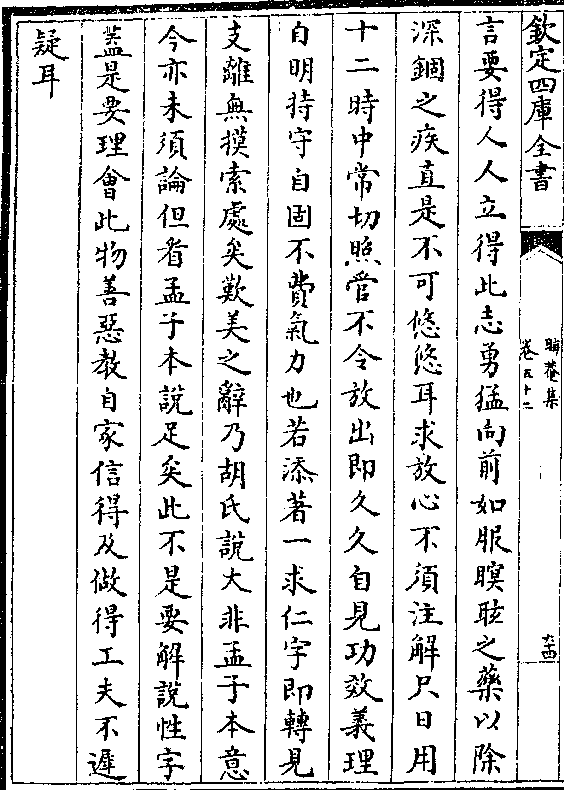 欽定四庫全書
晦菴集
卷五十二
言要得人人立得此志勇猛向前如服瞑眩之藥以除
深錮之疾直是不可悠悠耳求放心不須注解只日用
十二時中常切照管不令放出即久久自見功效義理
自明持守自固不費氣力也若添著一求仁字即轉見
支離無摸索處矣歎美之辭乃胡氏說大非孟子本意
今亦未須論但看孟子本說足矣此不是要解說性字
葢是要理會此物善惡教自家信得及做得工夫不遲
疑耳